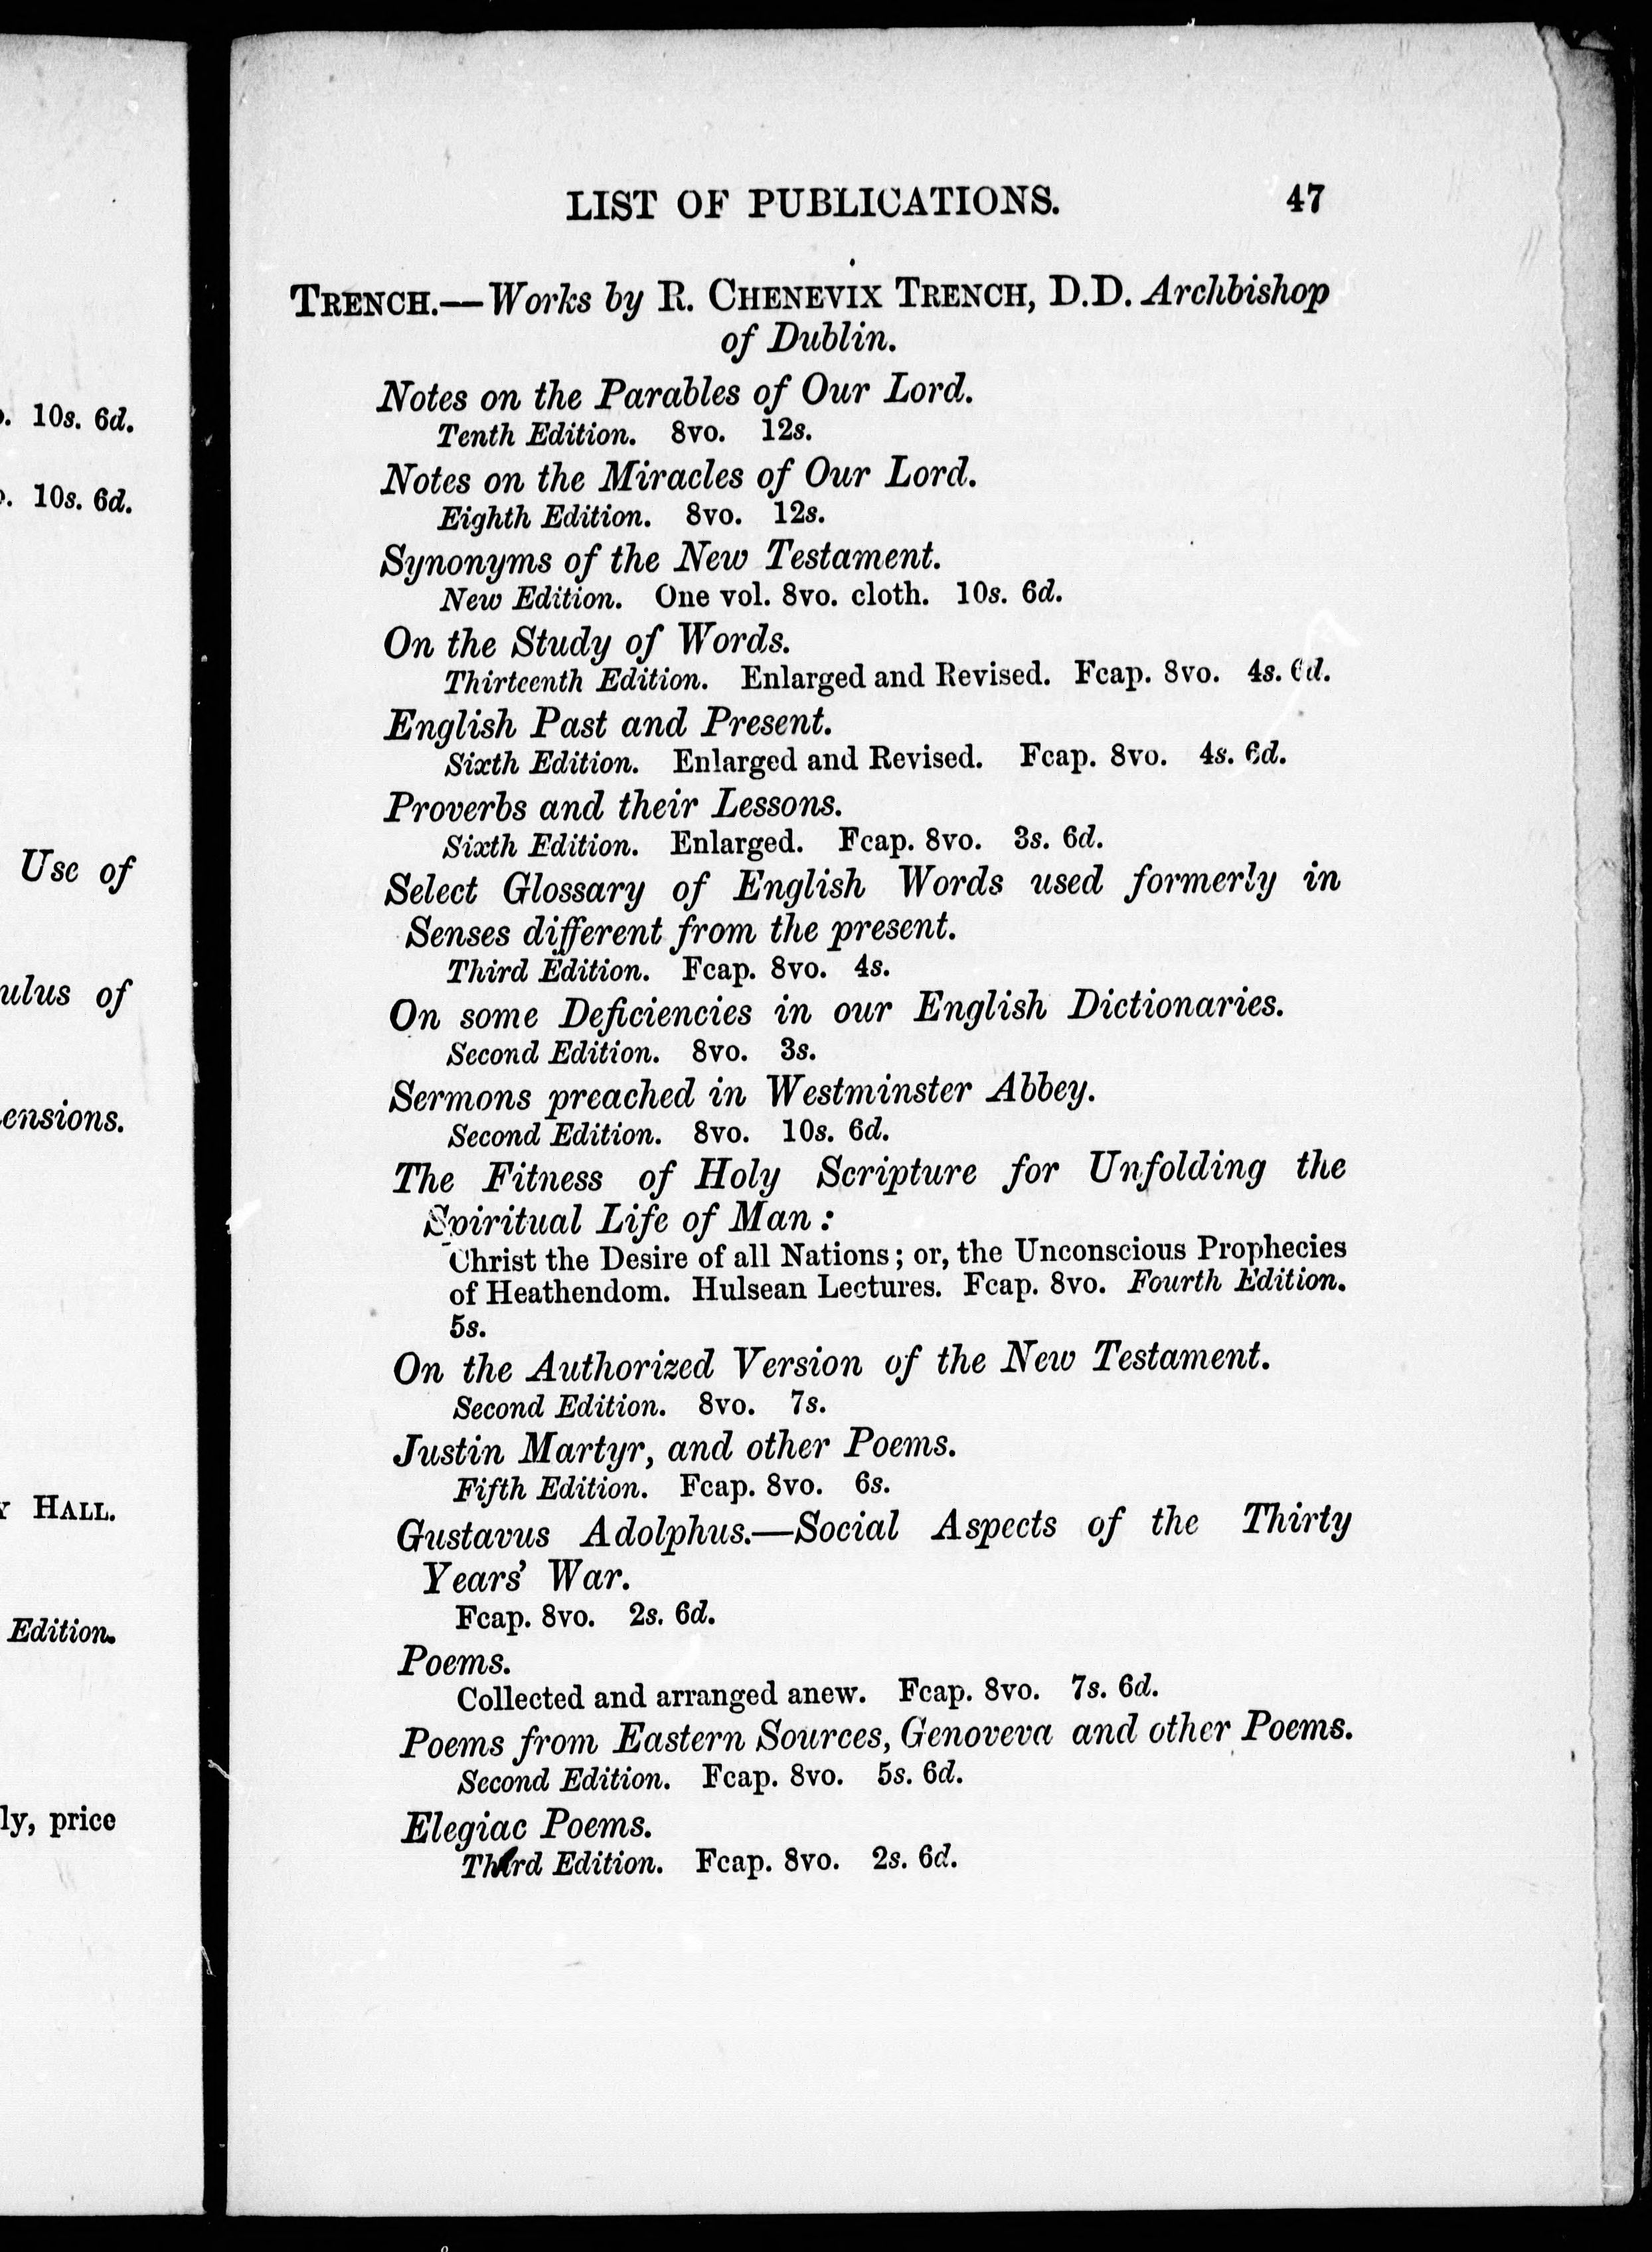 . 10s. 6d.
. 10s. 6d.
Use of
ulus of
ensions.
HALL.
Edition.
ly, price
LIST OF PUBLICATIONS. 47
TRENCH.—Works by R. CHENEVIX TRENCH, D.D. Archbishop
of Dublin.
Notes on the Parables of Our Lord.
Tenth Edition. 8vo. 12s.
Notes on the Miracles of Our Lord.
Eighth Edition. 8vo. 12s.
Synonyms of the New Testament.
New Edition. One vol. 8vo. cloth. 10s. 6d.
On the Study of Words.
Thirteenth Edition. Enlarged and Revised. Fcap. 8vo. 4s. 6d.
English Past and Present.
Sixth Edition. Enlarged and Revised. Fcap. 8vo. 4s. 6d.
Proverbs and their Lessons.
Sixth Edition. Enlarged. Fcap. 8vo. 3s. 6d.
Select Glossary of English Words used formerly in
Senses different from the present.
Third Edition. Fcap. 8vo. 4s.
On some Deficiencies in our English Dictionaries.
Second Edition. 8vo. 3s.
Sermons preached in Westminster Abbey.
Second Edition. 8vo. 10s. 6d.
The Fitness of Holy Scripture for Unfolding the
Spiritual Life of Man :
Christ the Desire of all Nations; or, the Unconscious Prophecies
of Heathendom. Hulsean Lectures. Fcap. 8vo. Fourth Edition.
5s.
On the Authorized Version of the New Testament.
Second Edition. 8vo. 7s.
Justin Martyr, and other Poems.
Fifth Edition. Fcap. 8vo. 6s.
Gustavus Adolphus.—Social Aspects of the Thirty
Years' War.
Fcap. 8vo. 2s. 6d.
Poems.
Collected and arranged anew. Fcap. 8vo. 7s. 6d.
Poems from Eastern Sources, Genoveva and other Poems.
Second Edition. Fcap. 8vo. 5s. 6d.
Elegiac Poems.
Third Edition. Fcap. 8vo. 2s. 6d.